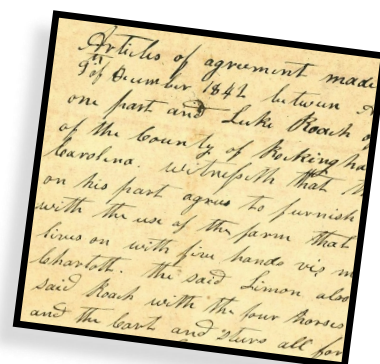 Articles of agreement made
9th of December 1841 between
one part and Luke Roach
of the County of Rockingha
Carolina. witnesseth that
on his part agrees to furnish
with the use of the farm that
lives on with five hands viz
Charlott. the said Simon also
said Roach with the four horses
and the Cart and Steers all for